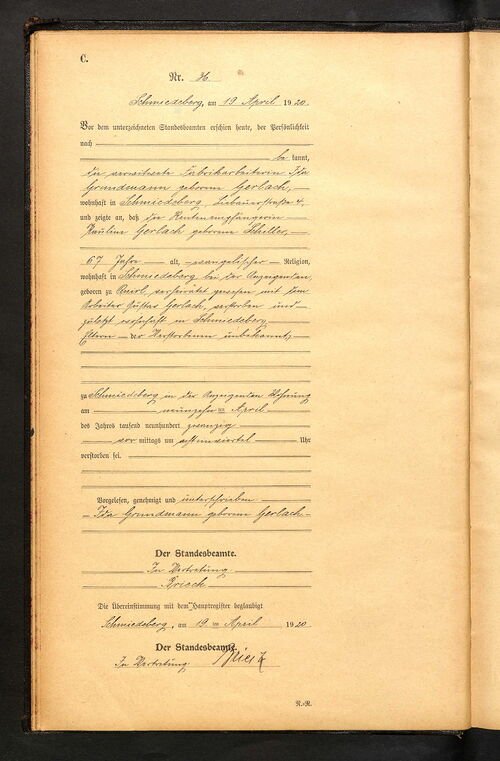 C.
Nr. 36
Schmiedeberg, am 19 April 1920.
Vor dem unterzeichneten Standesbeamten erschien heute, der Persönlichkeit
nach
be kannt,
die verwitwete Fabrikarbeiterin Ida
Grundmann geborene Gerlach,
wohnhaft in Schmiedeberg, Liebauerstraße 4,
und zeigte an, daß die Rentenempfängerin
Pauline Gerlach geborene Schiller,
67 Jahre alt, evangelischer Religion,
wohnhaft in Schmiedeberg bei der Anzeigenden,
geboren zu verheiratet gewesen mit dem
Arbeiter Gustav Gerlach, verstorben und
zuletzt wohnhaft in Schmiedeberg
Eltern der Verstorbenen unbekannt,
zu Schmiedeberg in der Anzeigenden Wohnung
am neunzehn April
des Jahres tausend neunhundert zwanzig
vor mittags um Uhr
verstorben sei.
Vorgelesen, genehmigt und unterschrieben
Ida Grundmann geborene Gerlach
Der Standesbeamte.
In Vertretung
Die Übereinstimmung mit dem Hauptregister beglaubigt
Schmiedeberg, am 19 April 1920.
Der Standesbeamte.
In Vertretung
R.-R.